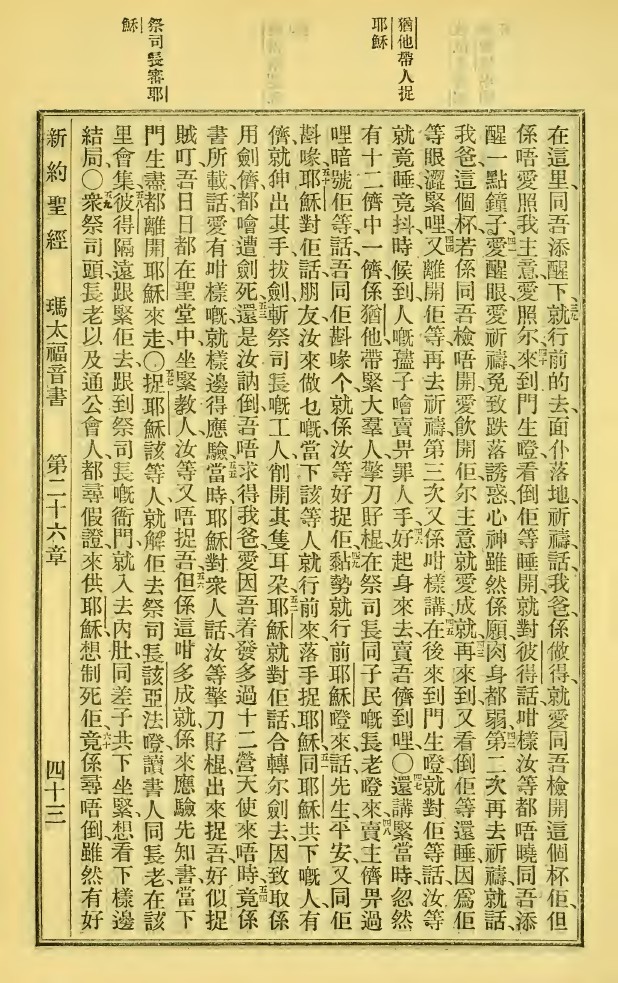 猶他帶人捉
耶穌
祭司長審耶
穌
在這里同吾添醒下、三九就行前的去、面仆落地祈禱話、我爸、係做得、就愛同吾檢開這個杯、但
係唔愛照我主意、愛照尔來、四十到門生嶝、看倒佢等睡開、就對彼得話、咁樣汝等都唔曉同吾添
醒一點鐘子、四一愛醒眼、愛祈禱、免致跌落誘惑、心神雖然係願、肉身都弱、四二第二次再去祈禱、就話、
我爸、這個杯、若係同吾檢唔開、愛飲開佢、尔主意就愛成就、四三再來到、又看倒佢等還睡、因爲佢
等眼澀緊哩、四四又離開佢等、再去祈禱第三次、又係咁樣講、四五在後來到門生嶝、就對佢等話、汝等
就竟睡竟抖、時候到、人嘅孻子噲賣畀罪人手、四六好起身來去、賣吾儕到哩、〇四七還講緊當時、忽然
有十二儕中一儕、係猶他、帶緊大羣人、擎刀財棍、在祭司長同子民嘅長老嶝來、四八賣主儕畀過
哩暗號佢等、話、吾同佢斟喙个、就係、汝等好捉佢、四九黏勢就行前耶穌嶝來、話、先生平安、又同佢
斟喙、五十耶穌對佢話、朋友、汝來做乜嘅、當下該等人就行前來、落手捉耶穌、五一同耶穌共下嘅人、有
儕就抻出其手、拔劍、斬祭司長嘅工人、削開其隻耳朶、五二耶穌就對佢話、合轉尔劍去、因致取係
用劍儕、都噲遭劍死、五三還是汝訥倒、吾唔求得我爸、愛因吾着發多過十二營天使來唔、五四時竟係
書所載話、愛有咁樣嘅、就樣邊得應驗、五五當時耶穌對衆人話、汝等擎刀財棍出來捉吾、好似捉
賊叮、吾日日都在聖堂中坐緊教人、汝等又唔捉吾、五六但係這咁多成就、係來應驗先知書、當下
門生盡都離開耶穌來走、〇五七捉耶穌該等人、就解佢去祭司長該亞法嶝、讀書人同長老在該
里會集、五八彼得隔遠跟緊佢去、跟到祭司長嘅衙門、就入去內肚、同差子共下坐緊、想看下樣邊
結局、〇五九衆祭司頭、長老、以及通公會人、都尋假證來供耶穌、想制死佢、六十竟係尋唔倒、雖然有好
新約聖經 瑪太福音書 第二十六章 四十三